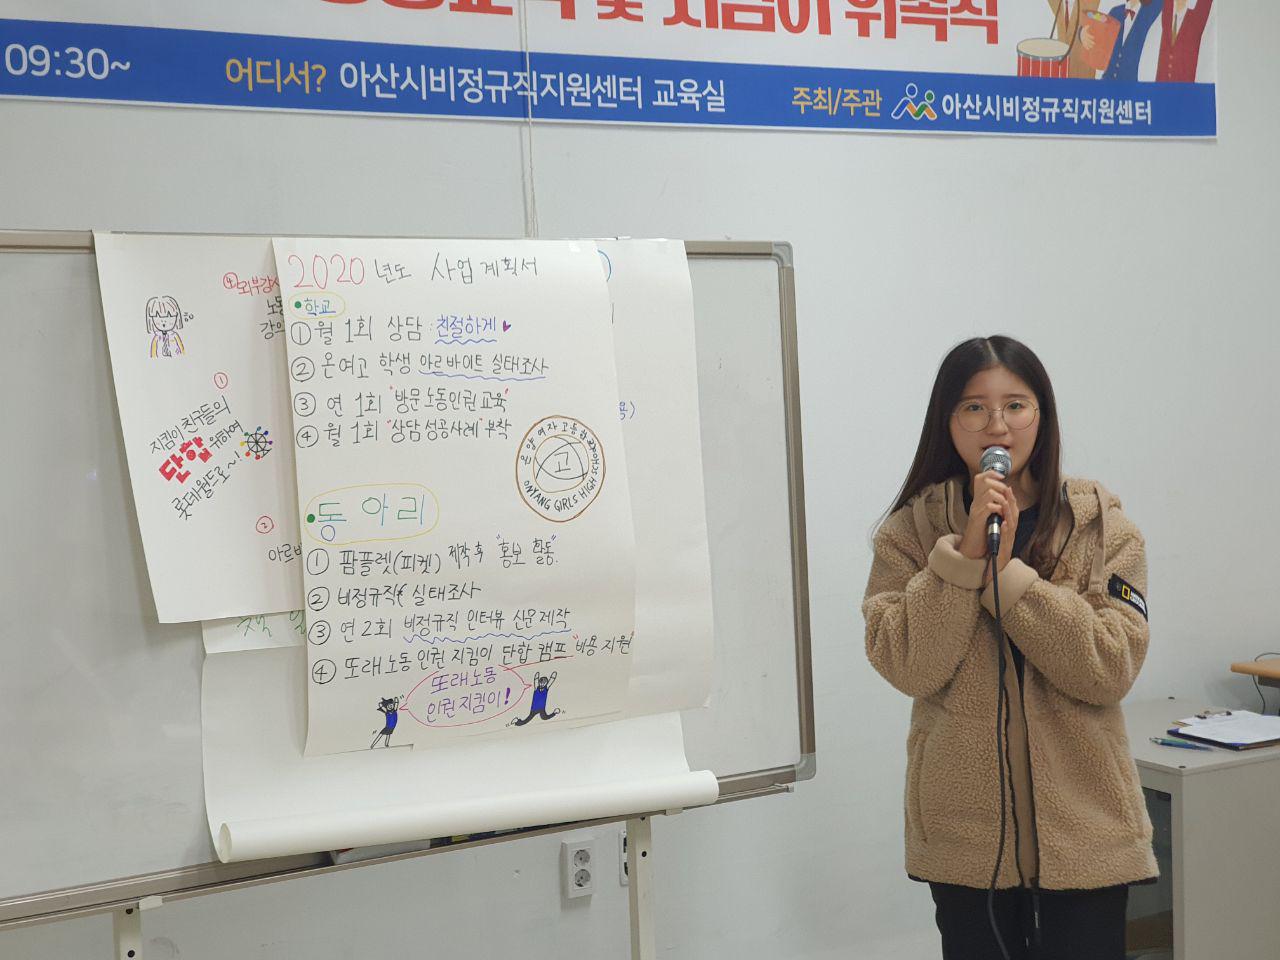 및 지킴이 위촉식
09:30~
어디서? 아산시비정규직지원센터 교육실
주최/주관 아산시비정규직지원센터
④외부강사
노동
강의
①
지킴이 친구들의
단합 위하여
롯데월드로~!
②
아르바
2020년도 사업계획서
•학교
① 월 1회 상담 : 친절하게 ♥
② 온여고 학생 아르바이트 실태조사
③ 연 1회 "방문노동인권교육"
④ 월 1회 "상담성공사례" 부착
온양여자고등학교
고
ONYANG GIRLS HIGH SCHOOL
•동아리
① 팜플렛(피켓) 제작 후 "홍보 활동".
② 비정규직 실태조사
③ 연2회 비정규직 인터뷰 신문제작
④ 또래노동인권지킴이 단합 캠프 "비용 지원"
또래노동
인권지킴이!